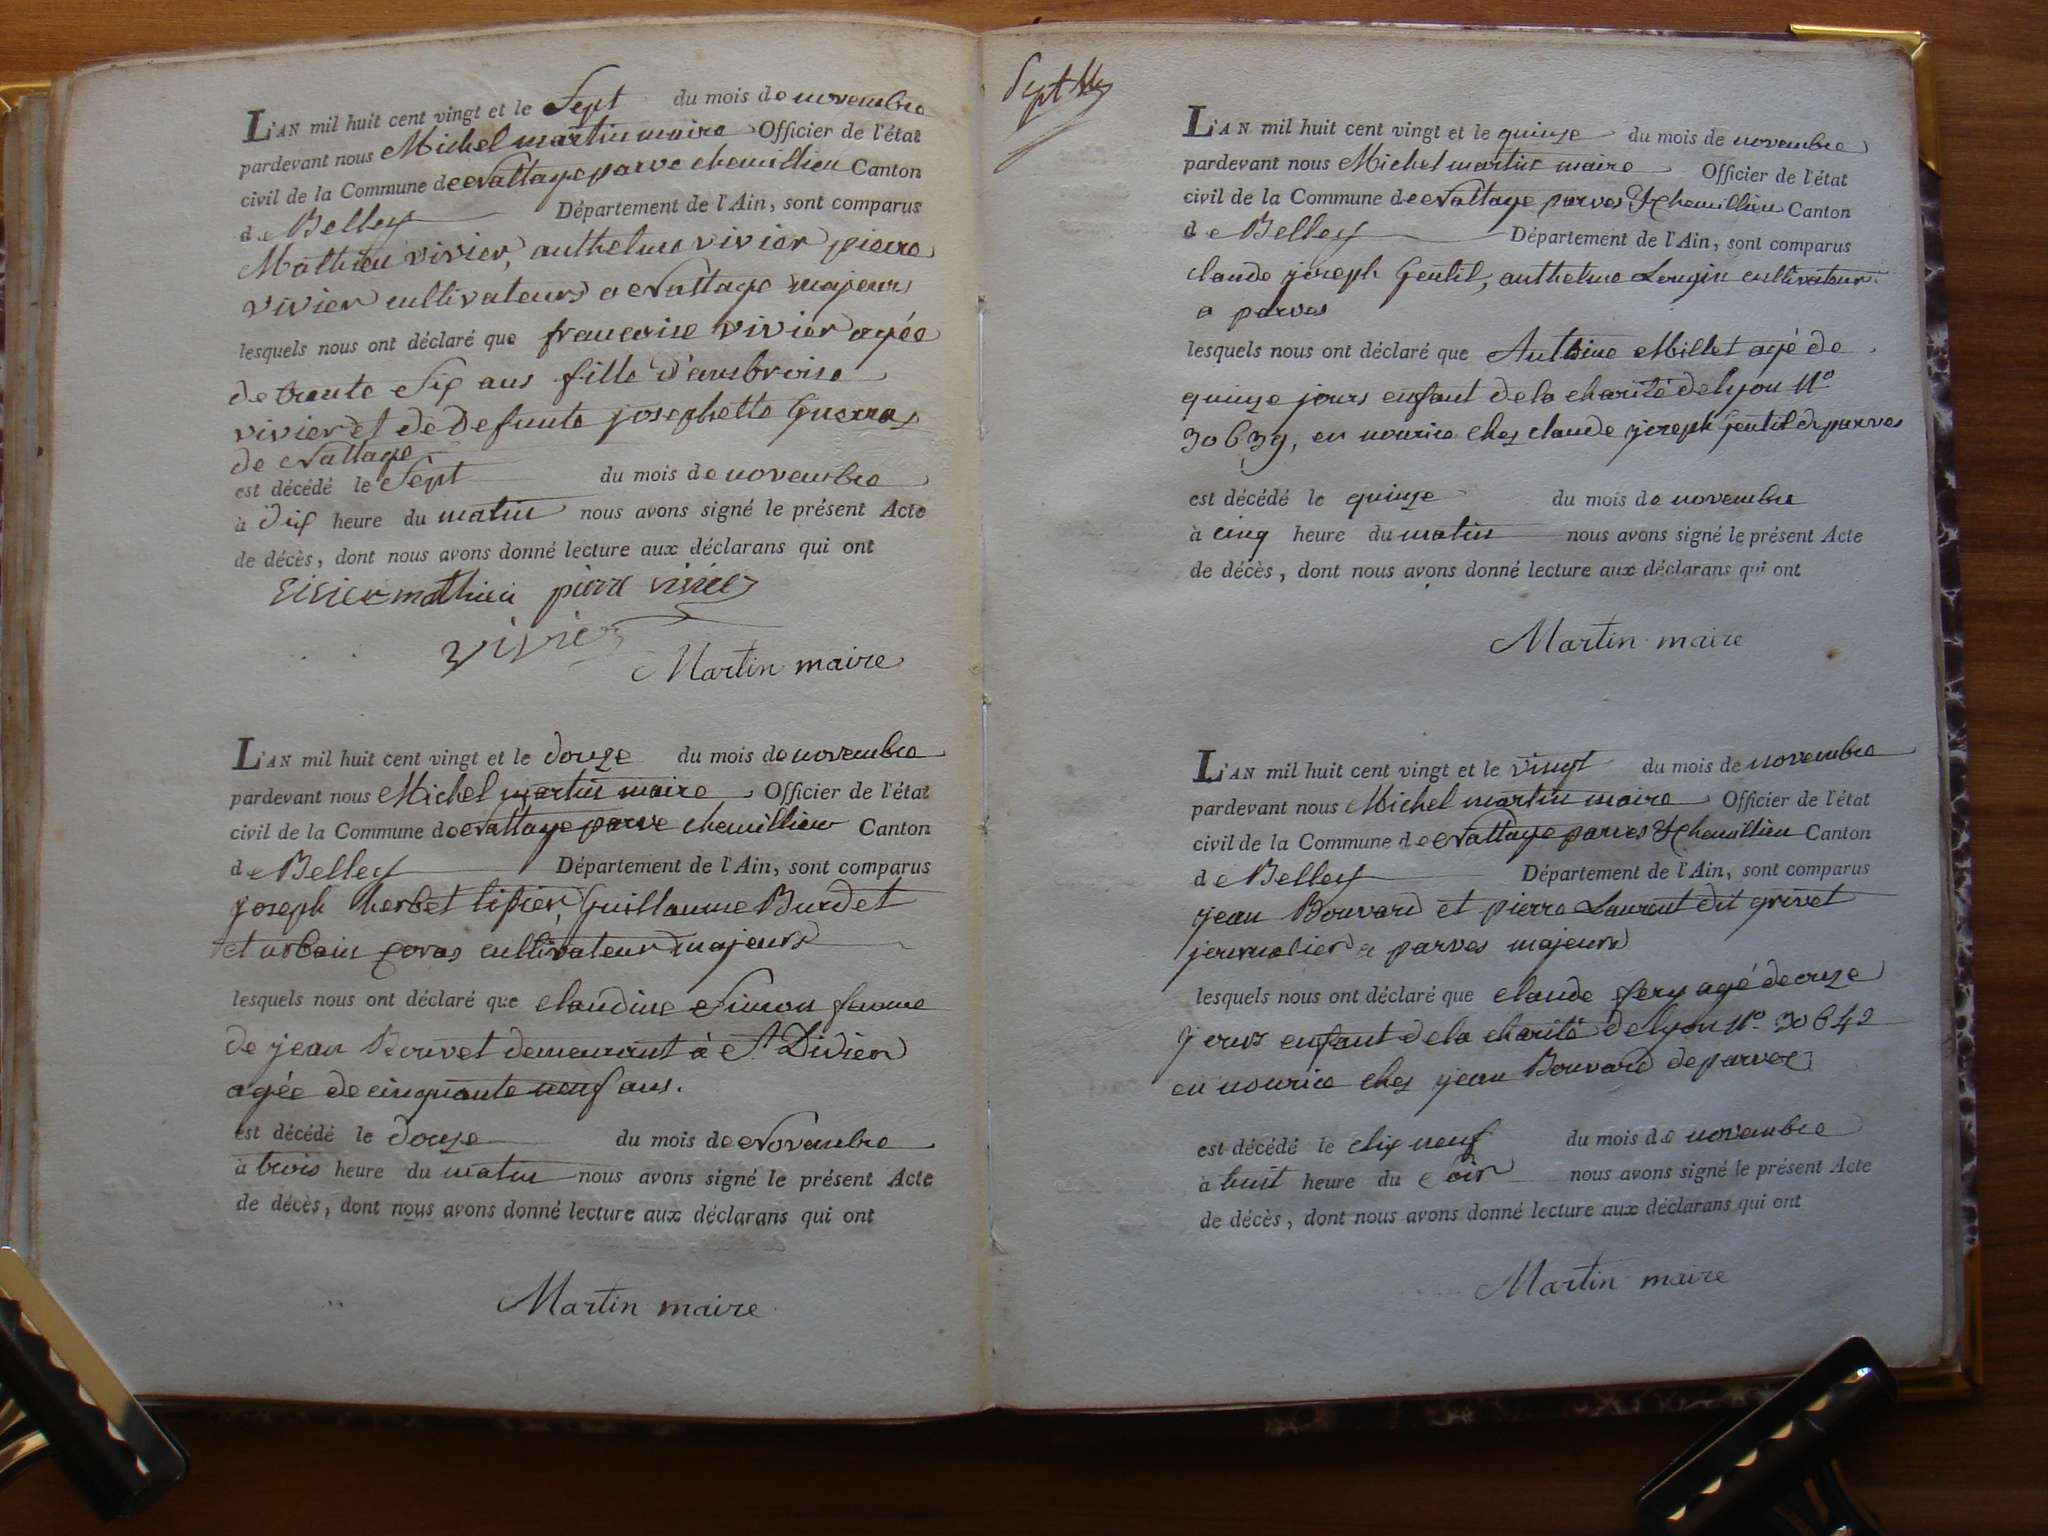 L'AN mil huit cent vingt et le Sept du mois de novembre
pardevant nous Michel martin maire Officier de l'état
civil de la Commune de Nattage parve chemillieu Canton
de Belley Département de l'Ain, sont comparus
Mathieu vivier, anthelme vivier pierre
vivier cultivateurs a Nattage majeurs
lesquels nous ont déclaré que francoise vivier agée
de trente Six ans fille d'ambroise
vivier et de defunte josephette Guerras
de Nattage
est décédé le Sept du mois de novembre
à dix heure du matin nous avons signé le présent Acte
de décès, dont nous avons donné lecture aux déclarans qui ont
vivier mathieu pierre vivier
vivier
Martin maire
L'AN mil huit cent vingt et le douze du mois de novembre
pardevant nous Michel martin maire Officier de l'état
civil de la Commune de Nattage parve chemillieu Canton
de Belley Département de l'Ain, sont comparus
joseph herbet tissier, Guillaume Burdet
et urbain cultivateurs majeurs
lesquels nous ont déclaré que claudine Simon femme
de jean Bouvet demeurant à St Didier
agée de cinquante neuf ans.
est décédé le douze du mois de Novembre
à trois heure du matin nous avons signé le présent Acte
de décès, dont nous avons donné lecture aux déclarans qui ont
Martin maire
Sept
L'AN mil huit cent vingt et le quinze du mois de novembre
pardevant nous Michel martin maire Officier de l'état
civil de la Commune de Nattage parves & chemillieu Canton
de Belley Département de l'Ain, sont comparus
claude joseph Gentil, anthelme Longin cultivateurs
a parves
lesquels nous ont déclaré que Antoine Millet agé de
quinze jours enfant de la charité de lyon N°
30639, en nourice ches claude joseph Gentil de parves
est décédé le quinze du mois de novembre
à cinq heure du matin nous avons signé le présent Acte
de décès, dont nous avons donné lecture aux déclarans qui ont
Martin maire
L'AN mil huit cent vingt et le vingt du mois de novembre
pardevant nous Michel martin maire Officier de l'état
civil de la Commune de Nattage parves & chemillieu Canton
de Belley Département de l'Ain, sont comparus
jean Bouvard et pierre Laurent dit grivet
journalier a parves majeurs
lesquels nous ont déclaré que claude fery agé de onze
jours enfant de la charité de lyon N°. 30642
en nourice ches jean Bouvard de parves
est décédé le dix neuf du mois de novembre
à huit heure du Soir nous avons signé le présent Acte
de décès, dont nous avons donné lecture aux déclarans qui ont
Martin maire